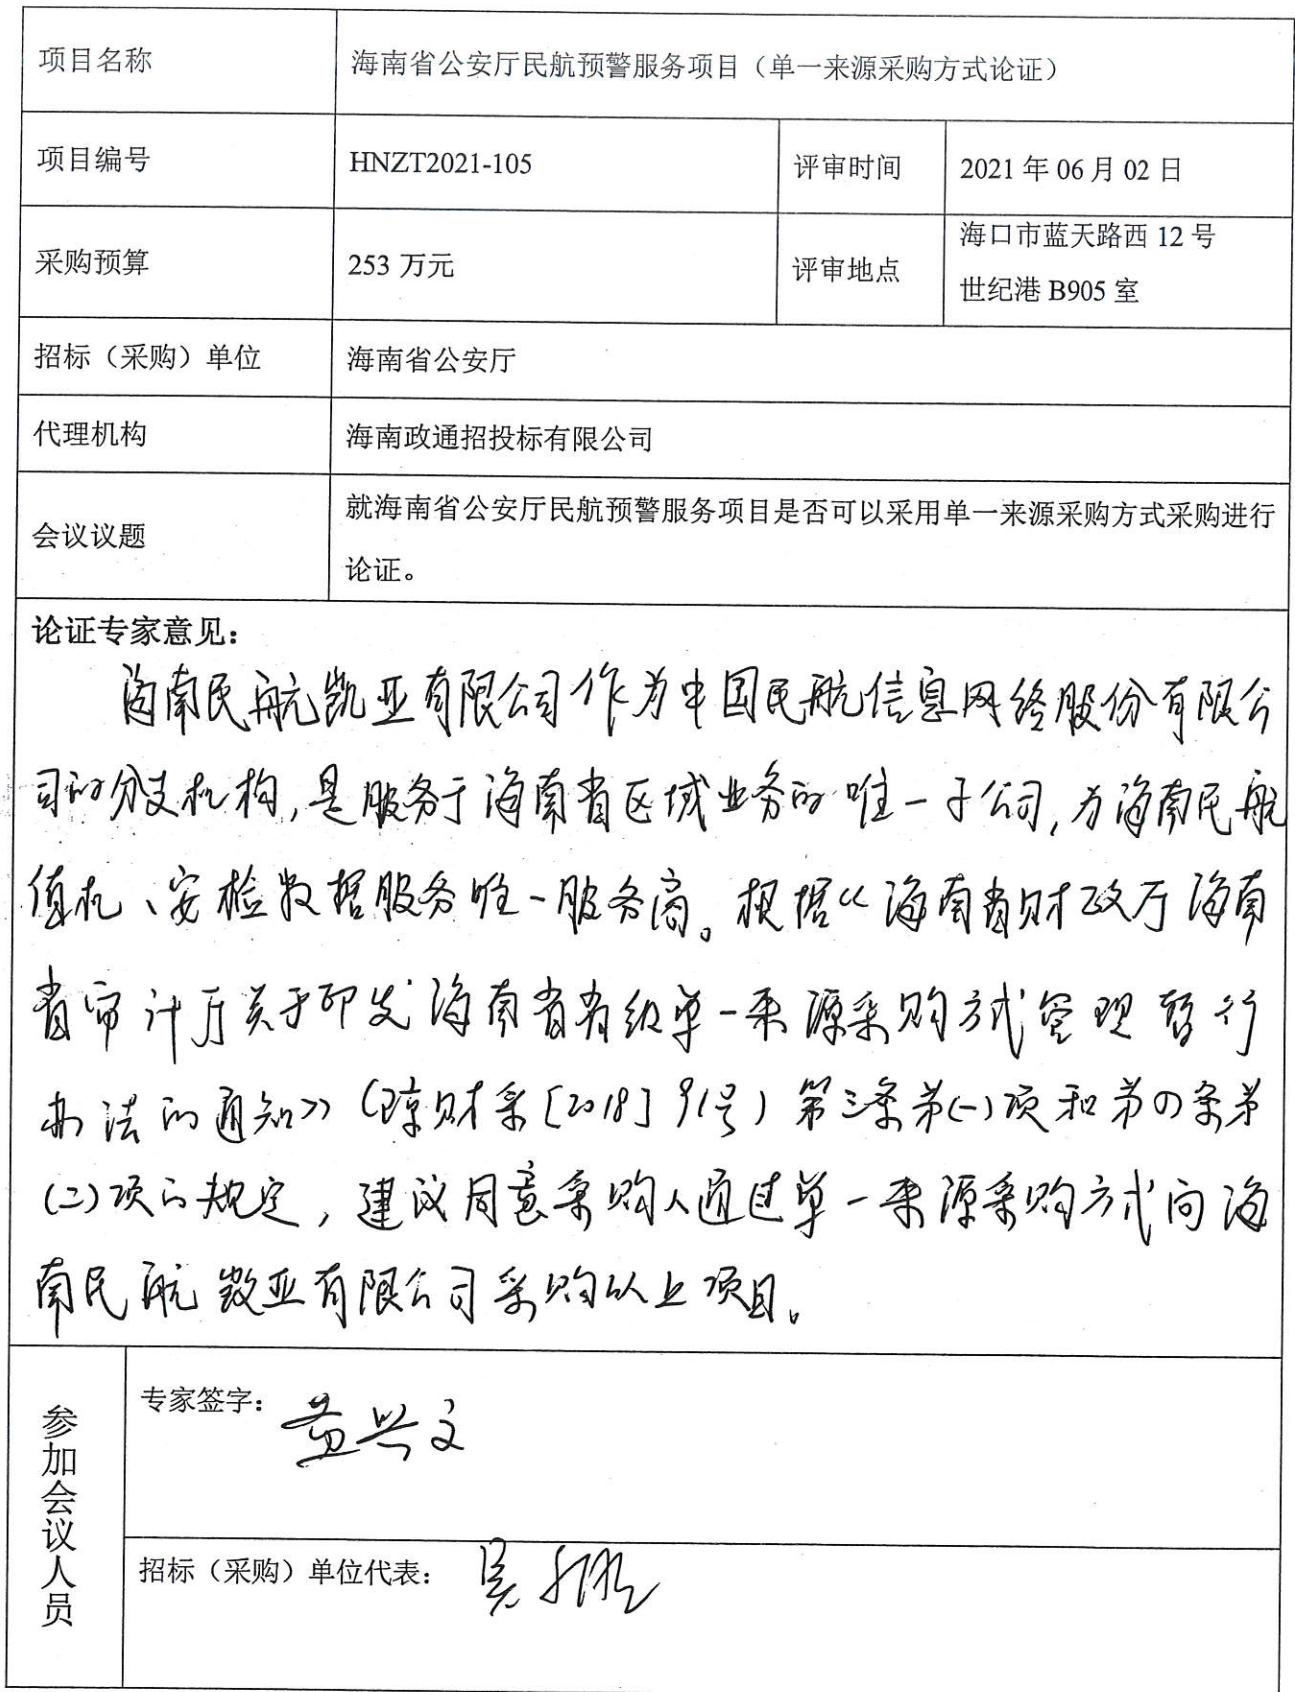 项目名称 海南省公安厅民航预警服务项目（单一来源采购方式论证）
项目编号 HNZT2021-105 评审时间 2021 年 06 月 02 日
采购预算 253 万元 评审地点 海口市蓝天路西 12 号
世纪港 B905 室
招标（采购）单位 海南省公安厅
代理机构 海南政通招投标有限公司
会议议题 就海南省公安厅民航预警服务项目是否可以采用单一来源采购方式采购进行
论证。
论证专家意见：
海南民航凯亚有限公司作为中国民航信息网络股份有限公
司的分支机构,是服务于海南省区域业务的唯一子公司,为海南民航
值机、安检数据服务唯一服务商。根据《海南省财政厅海南
省审计厅关于印发海南省省级单一来源采购方式管理暂行
办法的通知》(琼财采[2018]91号)第三条第(一)项和第四条第
(二)项的规定,建议同意采购人通过单一来源采购方式向海
南民航凯亚有限公司采购以上项目。
参加会议人员
专家签字：
招标（采购）单位代表：吴